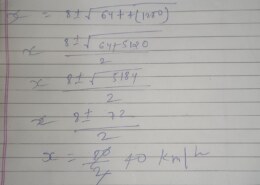 x = 8 ± √64 + 4(1280)
x 8 ± √64 5120 / 2
x 8 ± √5184 / 2
x 8 ± 72 / 2
x = 80 / 2 40 km/h